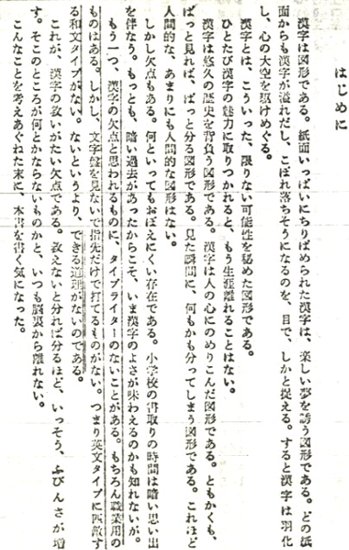 はじめに
漢字は図形である。紙面いっぱいにちりばめられた漢字は、楽しい夢を誘う図形である。どの紙
面からも漢字が溢れだし、こぼれ落ちそうになるのを、目で、しかと捉える。すると漢字は羽化
し、心の大空を駆けめぐる。
漢字とは、こういった、限りない可能性を秘めた図形である。
ひとたび漢字の魅力に取りつかれると、もう生涯離れることはない。
漢字は悠久の歴史を背負う図形である。漢字は人の心にのめりこんだ図形である。ともかくも、
ぱっと見れば、ぱっと分る図形である。見た瞬間に、何もかも分ってしまう図形である。これほど
人間的な、あまりにも人間的な図形はない。
しかし欠点もある。何といってもおぼえにくい存在である。小学校の書取りの時間は暗い思い出
を伴なう。もっとも、暗い過去があったからこそ、いま漢字のよさが味わえるのかも知れないが。
もう一つ、漢字の欠点と思われるものに、タイプライターのないことがある。もちろん職業用の
ものはある。しかし、文字盤を見ないで指先だけで打てるものがない。つまり英文タイプに匹敵す
る和文タイプがない。ないというより、できる道理がないのである。
これが、漢字の救いがたい欠点である。救えないと分れば分るほど、いっそう、ふびんさが増
す。そこのところが何とかならないものかと、いつも脳裏から離れない。
こんなことを考えあぐねた末に、本書を書く気になった。